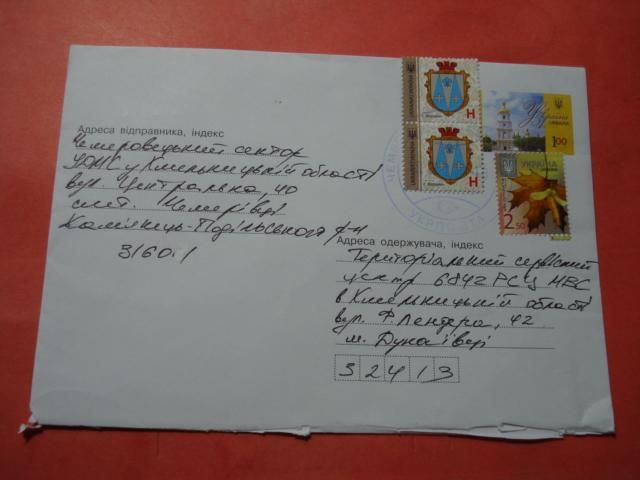 Адреса відправника, індекс
Чемеровецький сектор
УДМС у Хмельницькій області
вул. Центральна, 40
смт. Чемерівці
Кам'янець-Подільського р-н
31601
Україна
UKRAINA
1.00
H
H
УКРАЇНА
2.50
ЧЕМ
УКРПОШТА
Адреса одержувача, індекс
Територіальний сервісний
центр 6842 РСЦ МВС
в Хмельницькій області
вул. Ф. Лендера, 42
м. Дунаївці
32413